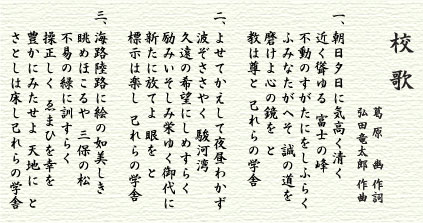 校歌
葛原 𦱳 作詞
弘田竜太郎 作曲
一、朝日夕日に気高く清く
近く聳ゆる 富士の峰
不動のすがたにをしふらく
ふみなたがへそ 誠の道を
磨けよ心の鏡を と
教は尊と 己れらの学舎
二、よせてかえして夜昼わかず
波ぞささやく 駿河湾
久遠の希望にしめすらく
励みいそしみ栄ゆく御代に
新たに放てよ 眼を と
標示は楽し 己れらの学舎
三、海路陸路に絵の如美しき
眺めほこるや 三保の松
不易の緑に訓すらく
操正しく ゑまひを幸を
豊かにみたせよ 天地に と
さとしは床し己れらの学舎